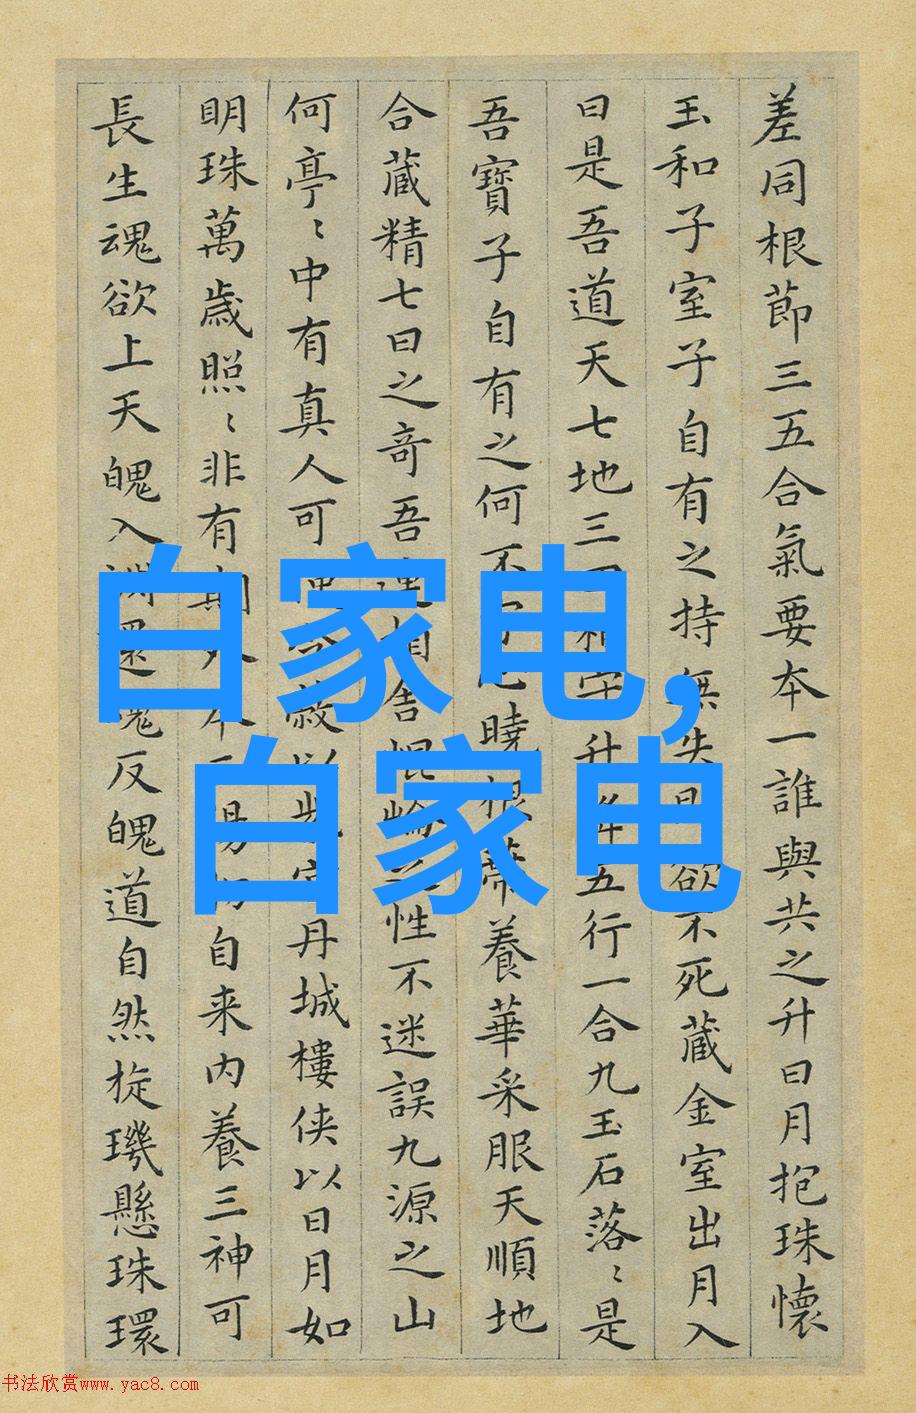 差同根節三五合氣要本一誰與共之升日月抱珠懷
玉和子室子自有之持無失即欲不死藏金室出月入
日是吾道天七地三相守升五行一合九玉石落〻是
吾寶子自有之何不曉根蒂養華采服天順地
合藏精七日之奇吾連相舍崐崘性不迷誤九源之山
何亭〻中有真人可使蔽以丹城樓俠以日月如
明珠萬歲照〻非有期本自来内養三神可
長生魂欲上天魄入淵還魂反魄道自然旋璣懸珠環
白家电,
白家电
书法欣赏www.yac8.com